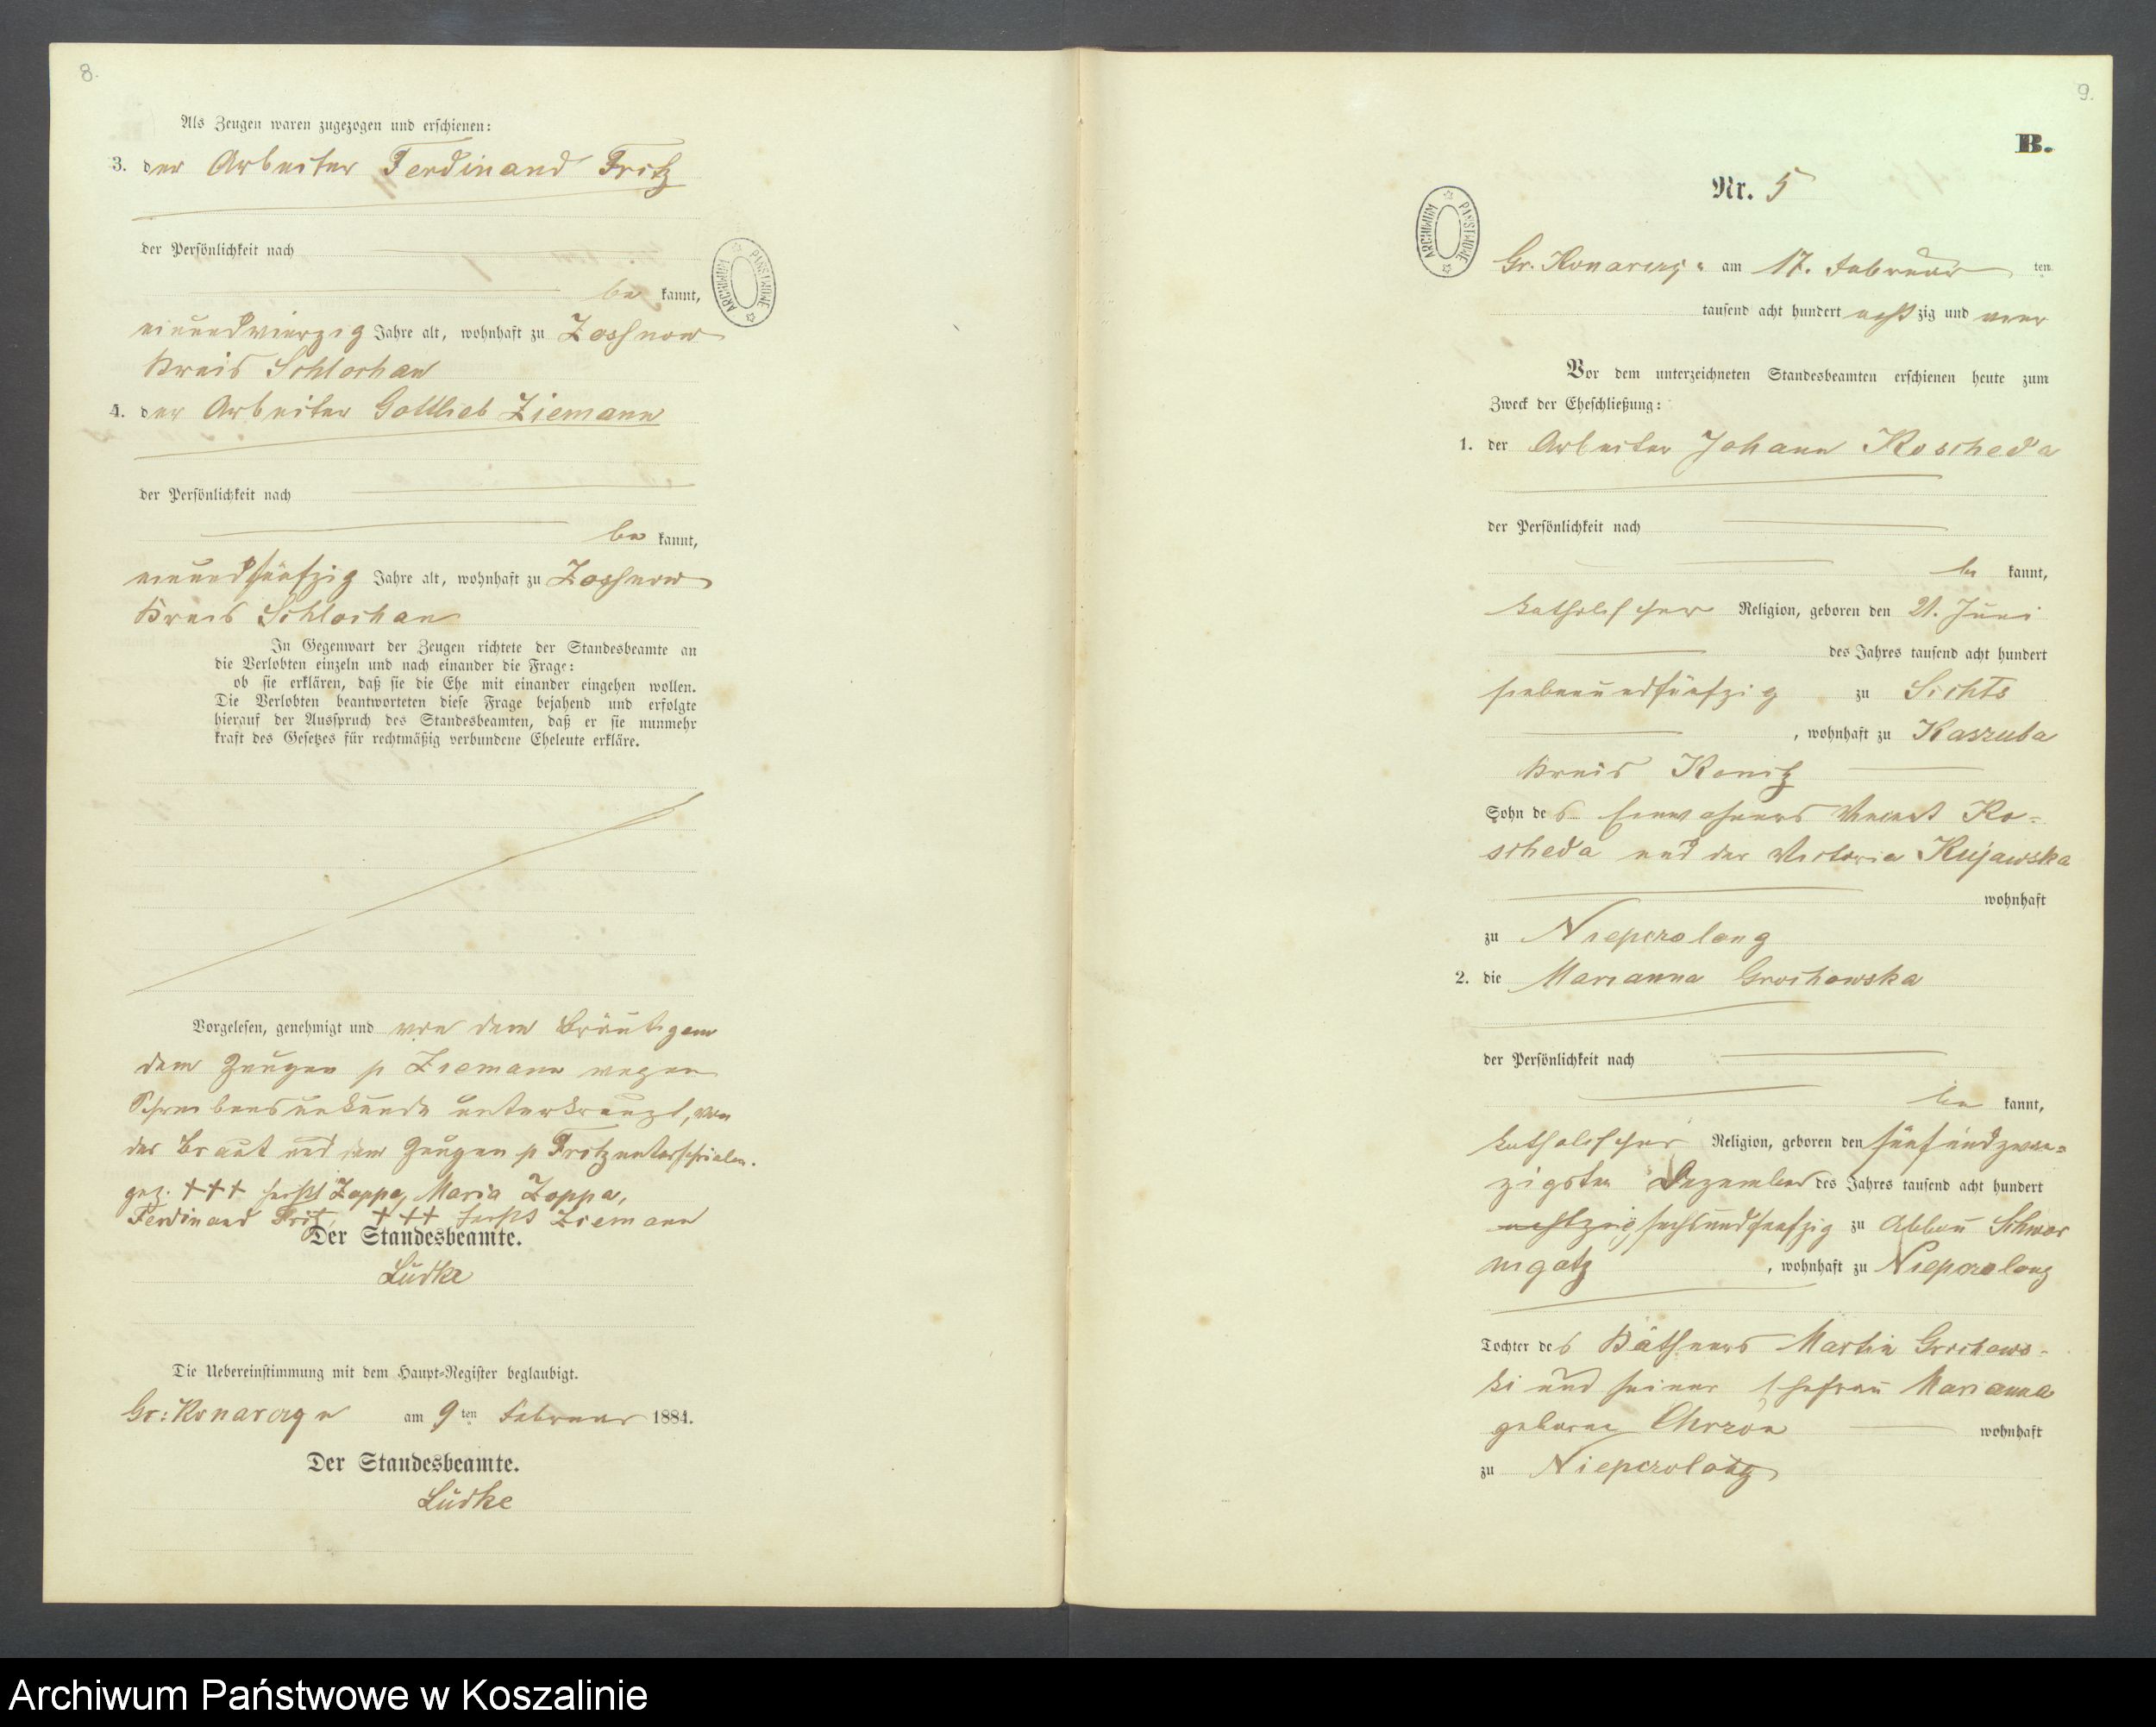 8.
Als Zeugen waren zugezogen und erschienen:
3. der Arbeiter Ferdinand Fritz
der Persönlichkeit nach
be kannt,
neunundvierzig Jahre alt, wohnhaft zu Zechnow
Kreis Schlochau
4. der Arbeiter Gottlieb Ziemann
der Persönlichkeit nach
be kannt,
Jahre alt, wohnhaft zu Zechnow
Kreis Schlochau
In Gegenwart der Zeugen richtete der Standesbeamte an
die Verlobten einzeln und nach einander die Frage:
ob sie erklären, daß sie die Ehe mit einander eingehen wollen.
Die Verlobten beantworteten diese Frage bejahend und erfolgte
hierauf der Ausspruch des Standesbeamten, daß er sie nunmehr
kraft des Gesetzes für rechtmäßig verbundene Eheleute erkläre.
Vorgelesen, genehmigt und von dem Bräutigam
dem Zeugen p Ziemann wegen
Schreibensunkunde unterkreuzt, von
der Braut und dem Zeugen p Fritz unterschrieben.
gez. +++ heißt Zoppa, Maria Zoppa,
Ferdinand Fritz, +++ heißt Ziemann
Der Standesbeamte.
Lüdke
Die Uebereinstimmung mit dem Haupt-Register beglaubigt.
Gr: Konarczyn am 9 ten Februar 1884.
Der Standesbeamte.
Lüdke
9.
B.
Nr. 5
ARCHIWUM PAŃSTWOWE
ARCHIWUM PAŃSTWOWE
Gr. Konarczyn am 17. Februar ten
tausend acht hundert acht zig und vier
Vor dem unterzeichneten Standesbeamten erschienen heute zum
Zweck der Eheschließung:
1. der Arbeiter Johann Koscheda
der Persönlichkeit nach
be kannt,
katholischer Religion, geboren den 21. Juni
des Jahres tausend acht hundert
siebenundfünfzig zu Sichts
, wohnhaft zu Kaszuba
Kreis Konitz
Sohn des Einwohners Vincent Ko-
scheda und der Victoria Kujawska
wohnhaft
zu Niepczolong
2. die Marianna Grochowska
der Persönlichkeit nach
be kannt,
katholischer Religion, geboren den fünfundzwan-
zigsten Dezember des Jahres tausend acht hundert
achtzig sechsundfünfzig zu Abbau Schwor
nigatz , wohnhaft zu Niepczolong
Tochter des Käthners Martin Grochows-
ki und seiner Ehefrau Marianna
geborne Chrzon wohnhaft
zu Niepczolong
Archiwum Państwowe w Koszalinie